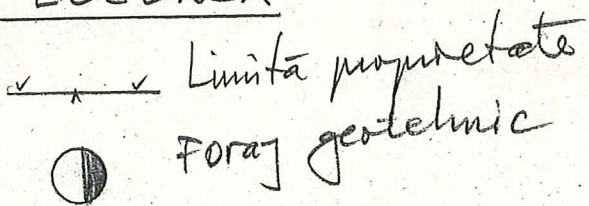 Limită proprietate
Foraj geotehnic